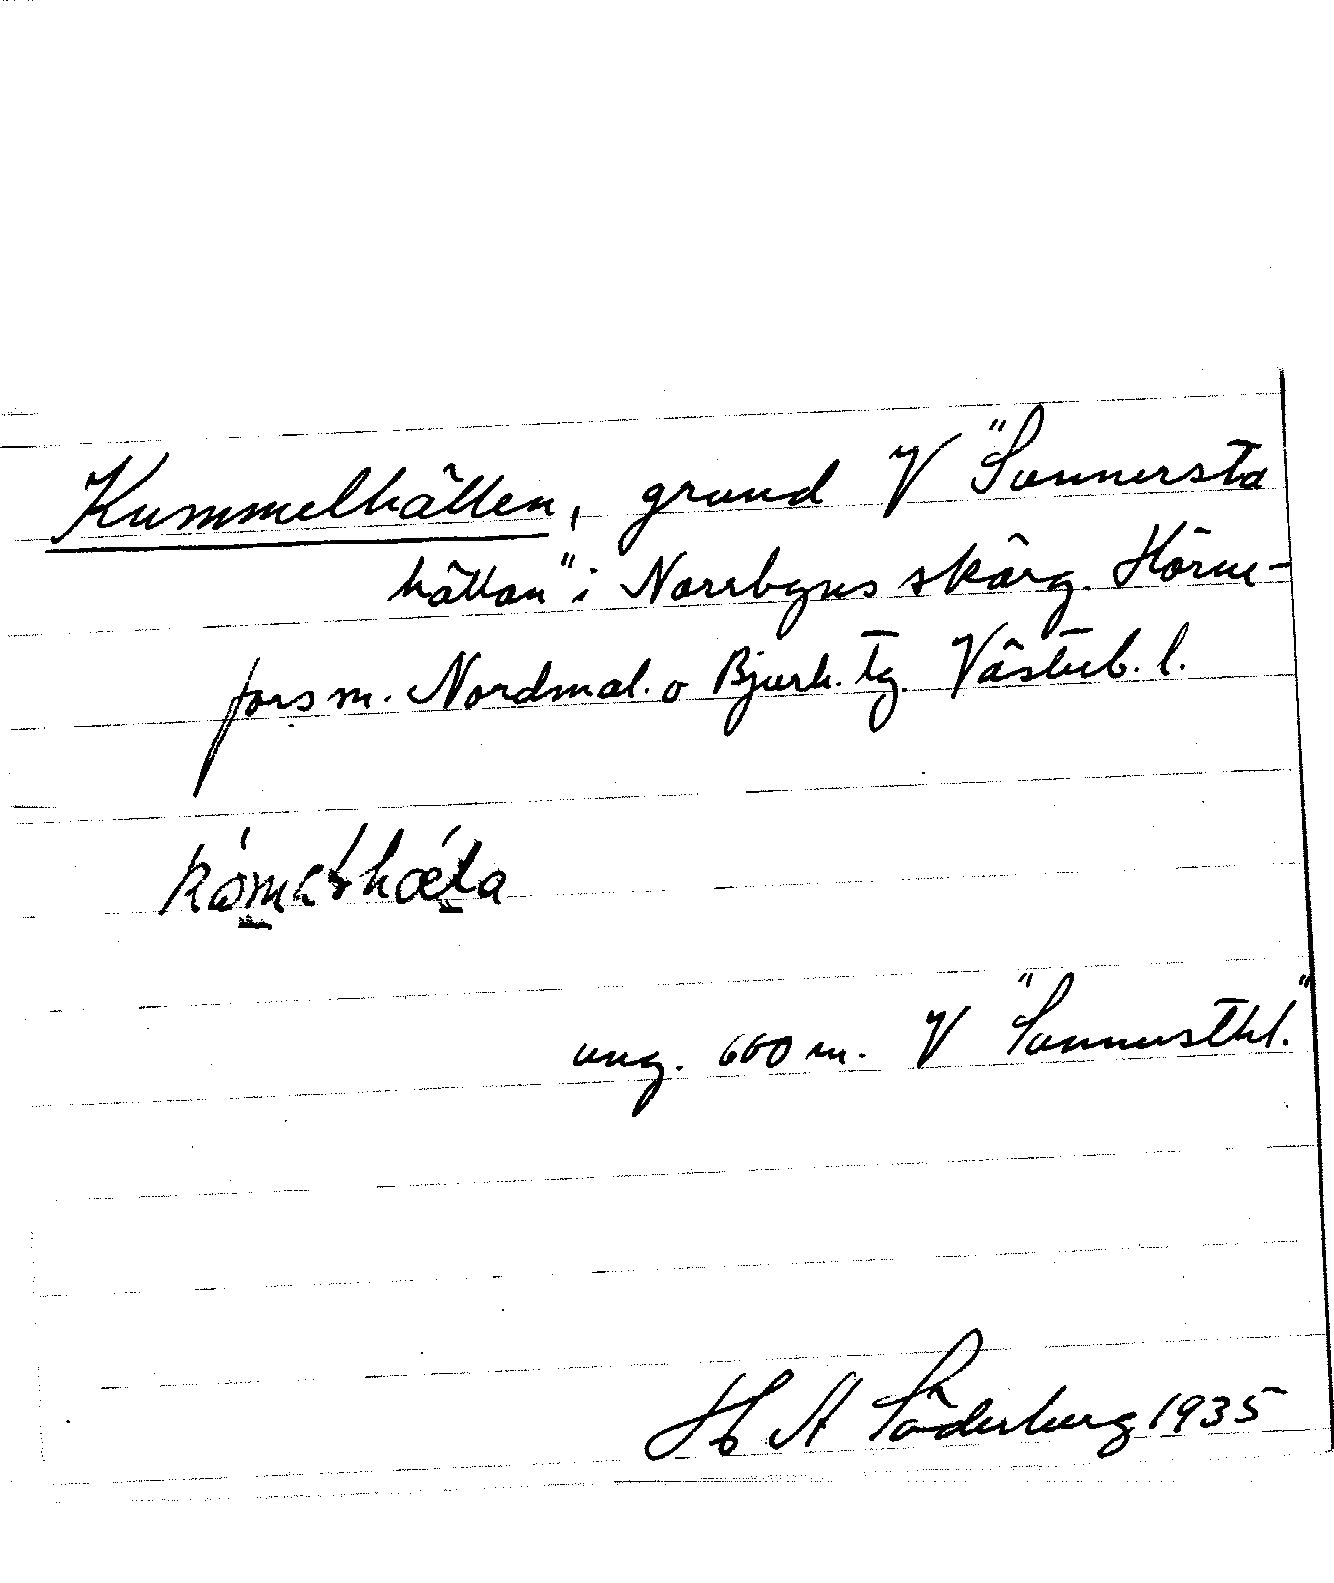 Kummelhällen, grund V "Sunnersta
hällan" i Norrbyns skärg. Hörne-
fors m. Nordmal. o Bjurh. tg. Västerb. l.
ung. 600 m. V "Sunnersthl."
H A Söderberg 1935